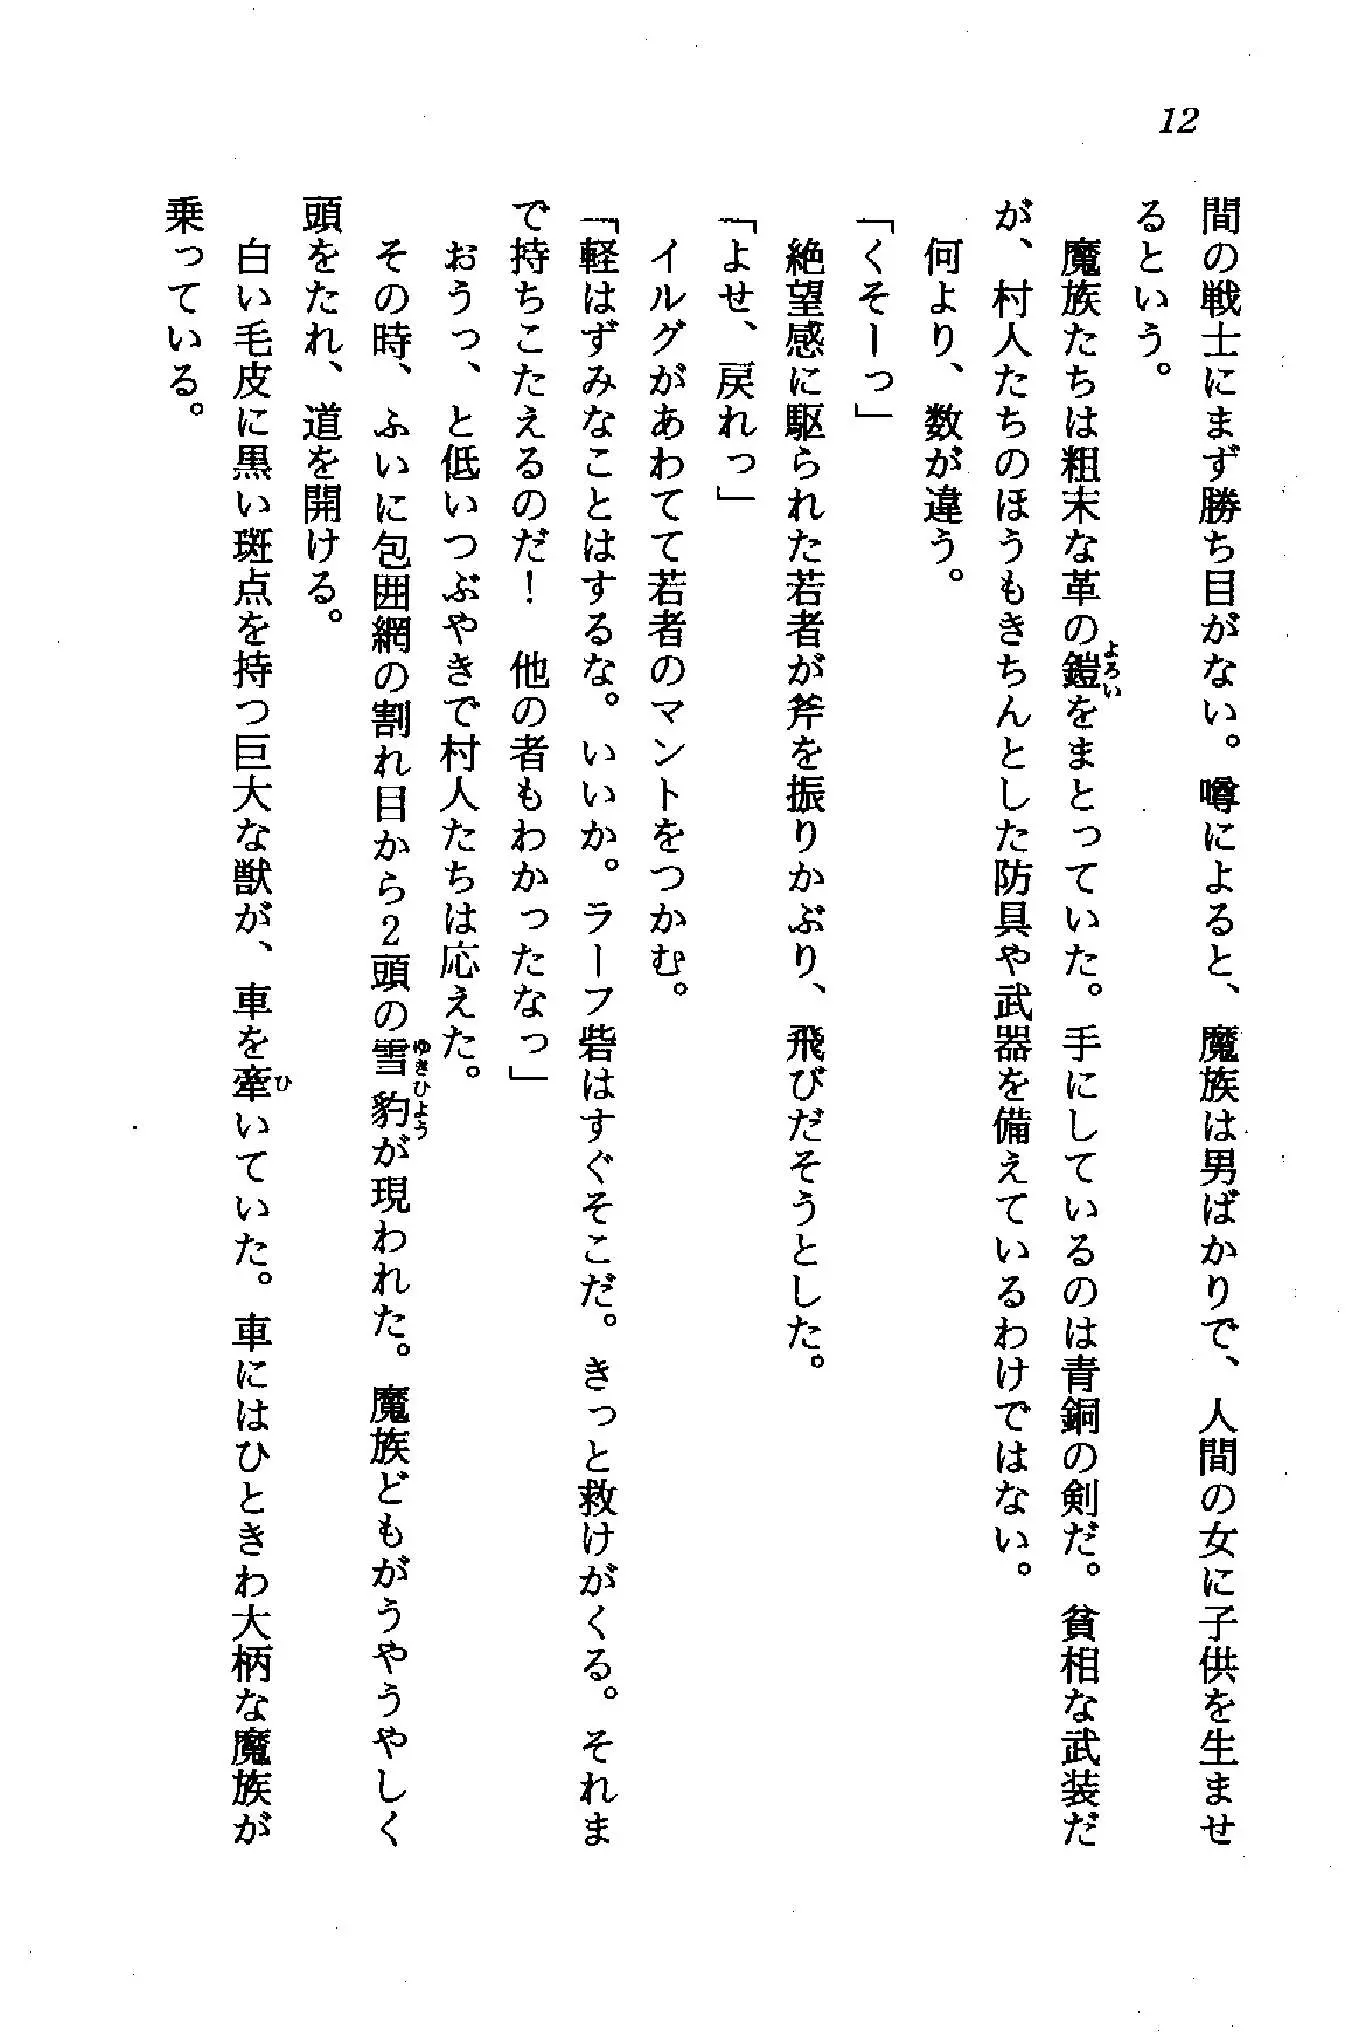 12
間の戦士にまず勝ち目がない。噂によると、魔族は男ばかりで、人間の女に子供を生ませ
るという。
　魔族たちは粗末な革の鎧をまとっていた。手にしているのは青銅の剣だ。貧相な武装だ
よろい
が、村人たちのほうもきちんとした防具や武器を備えているわけではない。
　何より、数が違う。
「くそーっ」
　絶望感に駆られた若者が斧を振りかぶり、飛びだそうとした。
「よせ、戻れっ」
　イルグがあわてて若者のマントをつかむ。
「軽はずみなことはするな。いいか。ラーフ砦はすぐそこだ。きっと救けがくる。それま
で持ちこたえるのだ！　他の者もわかったなっ」
　おうっ、と低いつぶやきで村人たちは応えた。
　その時、ふいに包囲網の割れ目から2頭の雪豹が現われた。魔族どもがうやうやしく
ゆきひよう
頭をたれ、道を開ける。
　白い毛皮に黒い斑点を持つ巨大な獣が、車を牽いていた。車にはひときわ大柄な魔族が
ひ
乗っている。